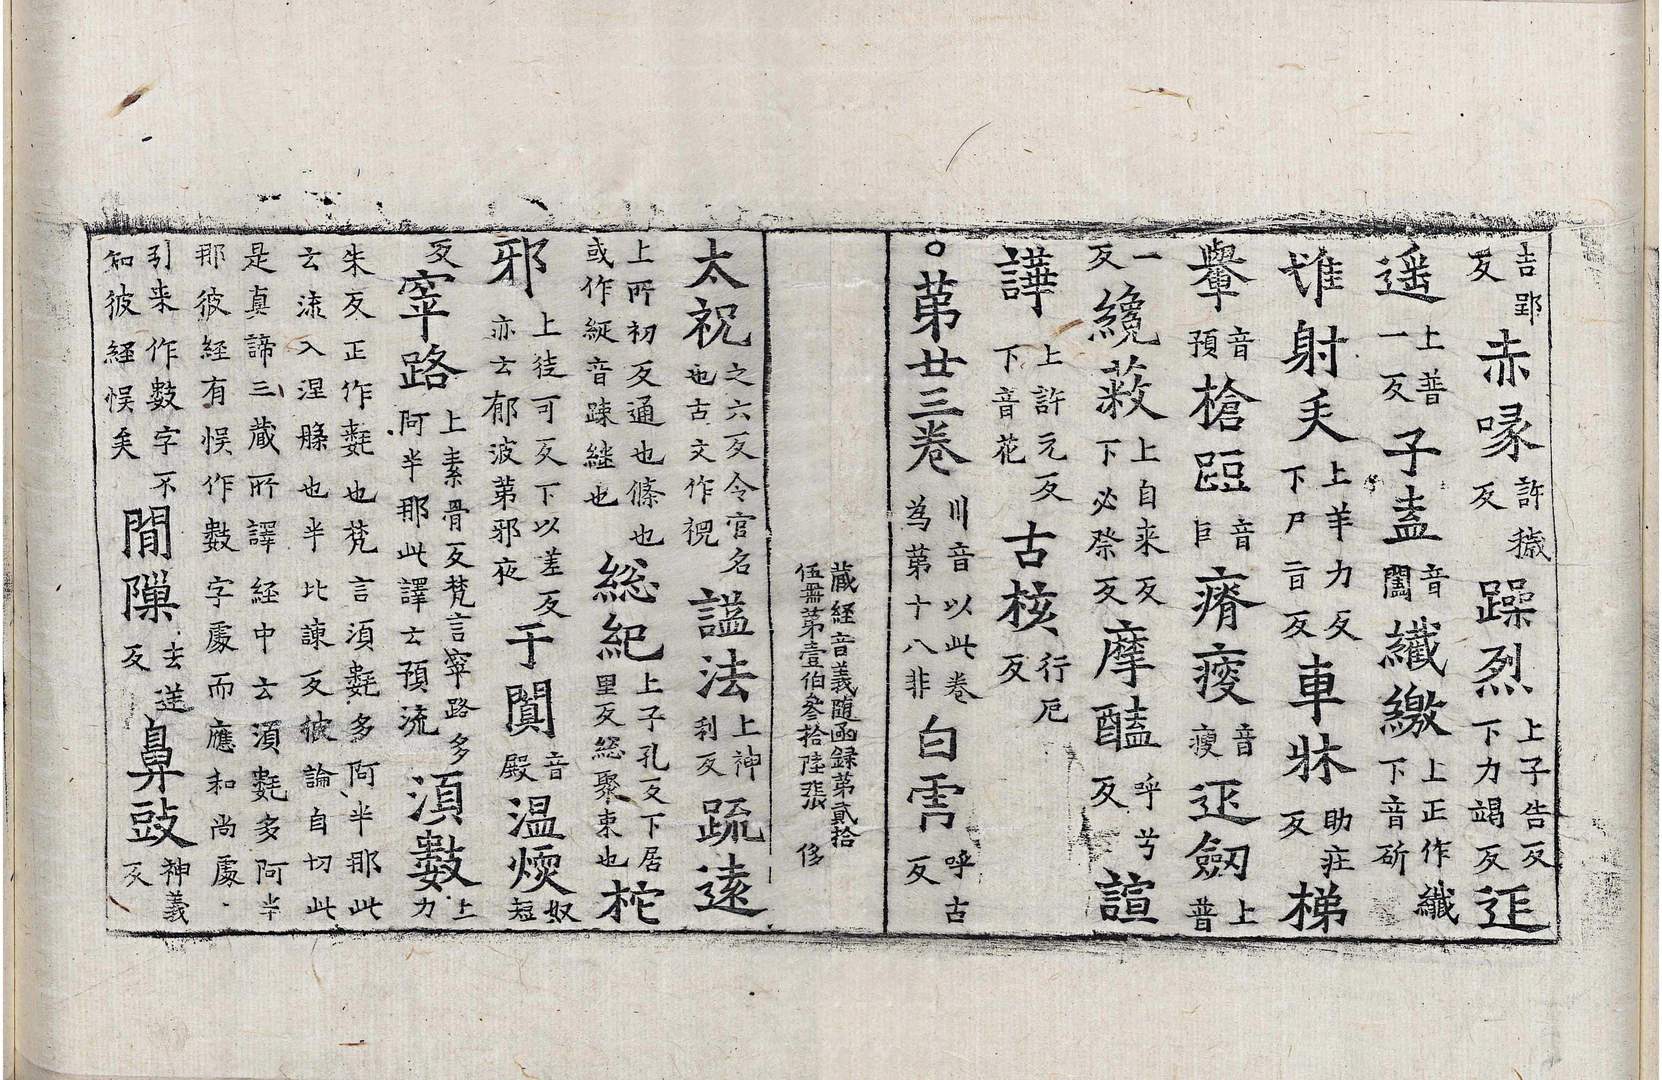 吉郢反 赤喙 許穢反 躁烈 上子告反下力竭反 迋
遥 上普一反 子盍 音闔 纖繳 上正作纖下音斫
唯射 上羊力反下尸亩反 車牀 助庄反 梯
轝 音預 槍 音巨 瘠瘦 音瘦 劒 上普
一反 纔蔌 上自来反下必祭反 摩醯 呼兮反 諠
譁 上許元反下音花 古核 行戹反
○第廿三卷 川音以此卷為第十八非 白雪 呼古反
藏経音義随函録第貳拾
伍冊第壹伯叄拾陸張 侈
太祝 之六反令官名也古文作祝 謚法 上神利反 疏遠
上所初反通也絛也或作綎音踈繨也 総紀 上子孔反下居里反総聚束也 柁
邪 上徒可反下以差反亦云郁波第邪夜 于闐 音殿 温煗 奴短
反 窣路 上素骨反梵言窣路多阿半那此譯云預流 湏數 上力
朱反正作㲣也梵言湏㲣多阿半那此
云流入涅槃也半比諫反彼論自切此
是真諦三藏所譯経中云湏㲣多阿半
那彼経有悮作數字處而應和尚處
引来作數字不知彼経悮矣 間隟 去逆反 鼻豉 神義反